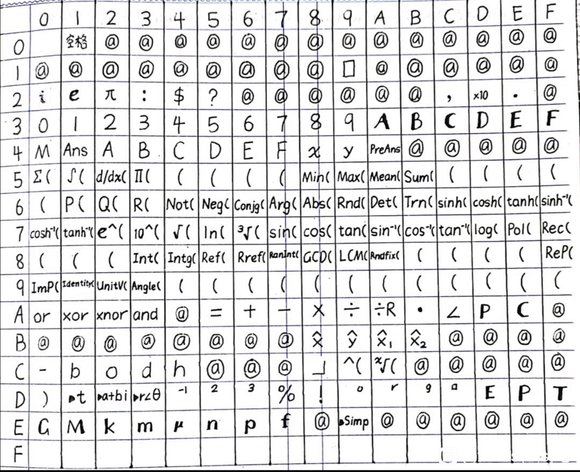 0 1 2 3 4 5 6 7 8 9 A B C D E F
0 空格 @ @ @ @ @ @ @ @ @ @ @ @ @ @
1 @ @ @ @ @ @ @ @ @ □ @ @ @ @ @ @
2 i e π : $ ? @ @ @ @ @ @ , ×10 . @
3 0 1 2 3 4 5 6 7 8 9 A B C D E F
4 M Ans A B C D E F x y PreAns @ @ @ @ @
5 Σ( ∫( d/dx( Π( ( ( ( ( Min( Max( Mean( Sum( ( ( ( (
6 ( P( Q( R( Not( Neg( Conjg( Arg( Abs( Rnd( Det( Trn( sinh( cosh( tanh( sinh⁻¹(
7 cosh⁻¹( tanh⁻¹( e^( 10^( √( ln( ³√( sin( cos( tan( sin⁻¹( cos⁻¹( tan⁻¹( log( Pol( Rec(
8 ( ( ( Int( Intg( Ref( Rref( RanInt( GCD( LCM( Rndfix( ( ( ( ( ReP(
9 ImP( Identity( UnitV( Angle( ( ( ( ( ( ( ( ( ( ( ( (
A or xor xnor and @ = + − × ÷ ÷R • ∠ P C @
B @ @ @ @ @ @ @ @ x̂ ŷ x̂₁ x̂₂ @ @ @ @
C - b o d h @ @ @ ┘ ^( ˣ√( @ @ @ @ @
D ) ▸t ▸a+bi ▸r∠θ ⁻¹ ² ³ % ! ° ʳ ᵍ ᵃ E P T
E G M k m μ n p f @ ▸Simp @ @ @ @ @ @
F